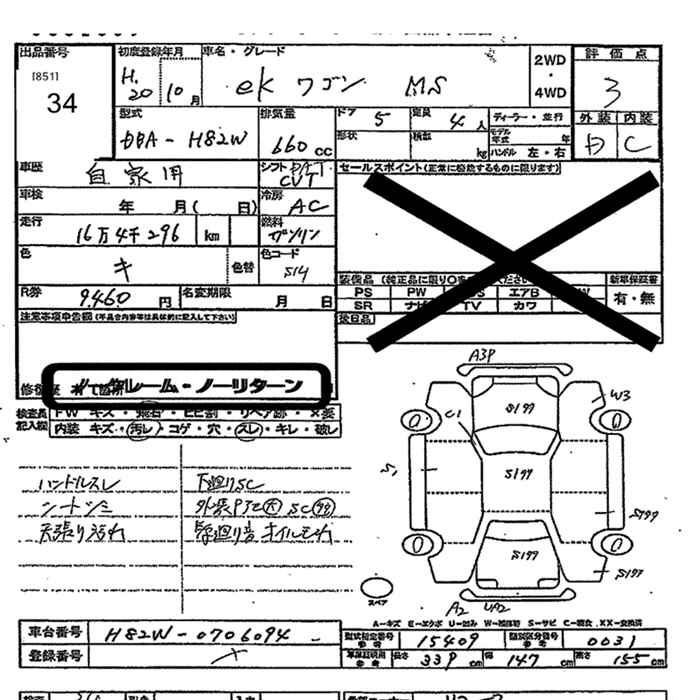 出品番号 初度登録年月 車名・グレード 評価点
[851]
34
H.20 10月 ek ワゴン MS 2WD・4WD 3
型式 排気量 ドア 5 定員 4人 ディーラー・並行 外装 内装
DBA-H82W 660cc 形状 積載 kg モデル年式 年 ハンドル 左・右 D C
車歴 自家用 シフト DAT. CVT セールスポイント(正常に稼働するものに限ります)
車検 年 月( 日) 冷房 AC
走行 16万4千296 km 燃料 ガソリン
色 キ 色替 色コード S14
装備品(純正品に限り〇
新車保証書
PS PW エアB
SR TV カワ 有・無
R券 9,460円 名変期限 月 日
後日品
注意事項申告欄(不具合内容等は具体的に記入して下さい)
ノークレーム・ノーリターン
検査員記入欄 FW キズ・飛石・ヒビ割・リペア跡・×要
内装 キズ・汚レ・コゲ・穴・スレ・キレ・破レ
ハンドルスレ 下廻りSC
シートシミ
天張り汚れ
A3P
W3
C1
S199
S1
S199
S199
S199
S199
スペア
A2 UA2
A-キズ E-エクボ U-凹み W-補修跡 S-サビ C-腐食 XX-交換済
車台番号 H82W-0706094
登録番号
型式指定番号 参考 15409 類別区分番号 参考 0031
車庫証明用 参考 長さ 339 cm 幅 147 cm 高さ 155 cm